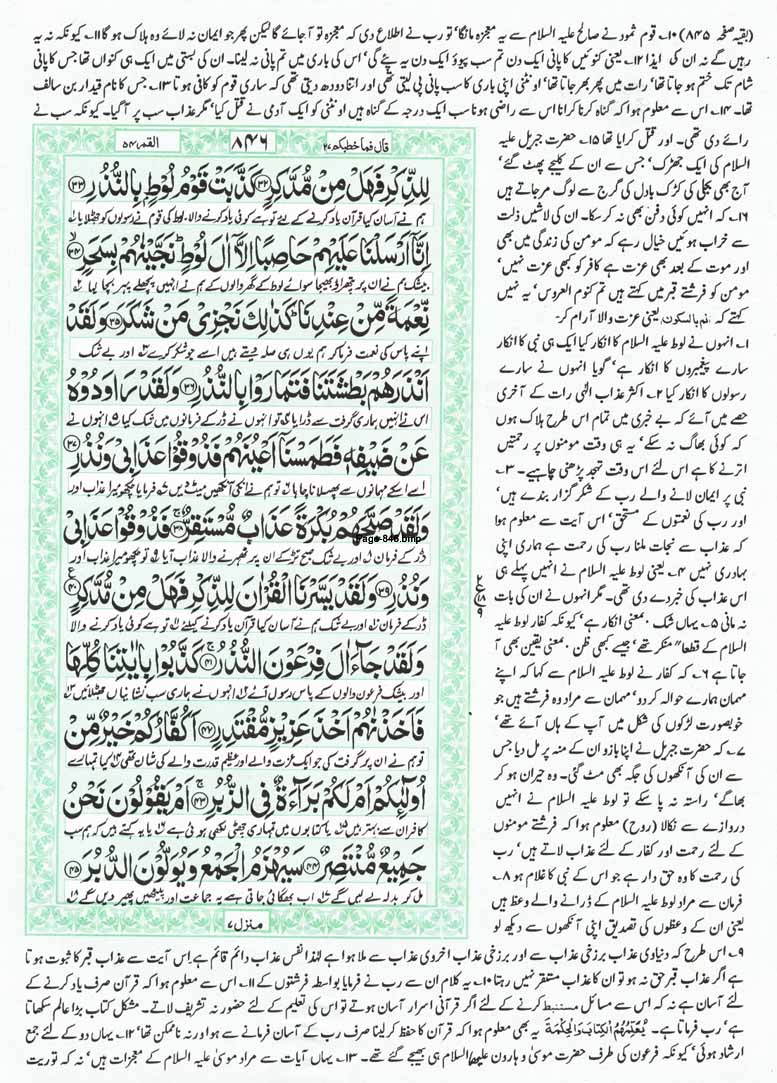 (بقیہ صفحہ ۸۴۵) ۱۰۔ قوم ثمود نے صالح علیہ السلام سے یہ معجزہ مانگا' تو رب نے اطلاع دی کہ معجزہ تو آ جائے گا لیکن پھر جو ایمان نہ لائے وہ ہلاک ہو گا ۱۱۔ کیونکہ نہ یہ
رہیں گے نہ ان کی ایذا ۱۲۔ یعنی کنوئیں کا پانی ایک دن تم سب پیو' ایک دن یہ پئے گی' اس کی باری میں تم پانی نہ لینا۔ ان کی بستی میں ایک ہی کنواں تھا جس کا پانی
شام تک ختم ہو جاتا تھا' رات میں پھر بھر جاتا تھا' اونٹنی اپنی باری کا سب پانی پی لیتی تھی اور اتنا دودھ دیتی تھی کہ ساری قوم کو کافی ہوتا ۱۳۔ جس کا نام قیدار بن سالف
تھا۔ ۱۴۔ اس سے معلوم ہوا کہ گناہ کرنا کرانا اس سے راضی ہونا سب ایک درجہ کے گناہ ہیں اونٹنی کو ایک آدمی نے قتل کیا' مگر عذاب سب پر آگیا۔ کیونکہ سب نے
رائے دی تھی۔ اور قتل کرایا تھا ۱۵۔ حضرت جبریل علیہ
السلام کی ایک جھڑک' جس سے ان کے کلیجے پھٹ گئے'
آج بھی بجلی کی کڑک بادل کی گرج سے لوگ مر جاتے ہیں
۱۶۔ کہ انہیں کوئی دفن بھی نہ کر سکا۔ ان کی لاشیں ذلت
سے خراب ہوئیں خیال رہے کہ مومن کی زندگی میں بھی
اور موت کے بعد بھی عزت ہے کافر کو کبھی عزت نہیں'
مومن کو فرشتے قبر میں کہتے ہیں نم کنوم العروس' یہ نہیں
کہتے کہ نم بالسکون یعنی عزت والا آرام کر۔
۱۔ انہوں نے لوط علیہ السلام کا انکار کیا ایک ہی نبی کا انکار
سارے پیغمبروں کا انکار ہے' گویا انہوں نے سارے
رسولوں کا انکار کیا ۲۔ اکثر عذاب الٰہی رات کے آخری
حصے میں آئے کہ بے خبری میں تمام اس طرح ہلاک ہوں
کہ کوئی بھاگ نہ سکے' یہ ہی وقت مومنوں پر رحمتیں
اترنے کا ہے اس لئے اس وقت تہجد پڑھنی چاہیے۔ ۳۔
نبی پر ایمان لانے والے رب کے شکر گزار بندے ہیں'
اور رب کی نعمتوں کے مستحق' اس آیت سے معلوم ہوا
کہ عذاب سے نجات ملنا رب کی رحمت ہے ہماری اپنی
بہادری نہیں ۴۔ یعنی لوط علیہ السلام نے انہیں پہلے ہی
اس عذاب کی خبر دے دی تھی۔ مگر انہوں نے ان کی بات
نہ مانی ۵۔ یہاں شک ۔ بمعنی انکار ہے' کیونکہ کفار لوط علیہ
السلام کے قطعاً منکر تھے' جیسے کبھی ظن ۔ بمعنی یقین بھی آ
جاتا ہے ۶۔ کہ کفار نے لوط علیہ السلام سے کہا کہ اپنے
مہمان ہمارے حوالہ کر دو' مہمان سے مراد وہ فرشتے ہیں جو
خوبصورت لڑکوں کی شکل میں آپ کے ہاں آئے تھے'
۷۔ کہ حضرت جبریل نے اپنا بازو ان کے منہ پر مل دیا جس
سے ان کی آنکھوں کی جگہ بھی مٹ گئی۔ وہ حیران ہو کر
بھاگے' راستہ نہ پا سکے تو لوط علیہ السلام نے انہیں
دروازے سے نکالا (روح) معلوم ہوا کہ فرشتے مومنوں
کے لئے رحمت اور کفار کے لئے عذاب لاتے ہیں' رب
کی رحمت کا وہ حق دار ہے جو اس کے نبی کا غلام ہو ۸۔
فرمان سے مراد لوط علیہ السلام کے ڈرانے والے وعظ ہیں
یعنی ان کے وعظوں کی تصدیق اپنی آنکھوں سے دیکھ لو
قال فما خطبکم ۲۷
۸۴۶
القمر ۵۴
لِلذِّكْرِ فَهَلْ مِنْ مُّدَّكِرٍ ۝۳۲ كَذَّبَتْ قَوْمُ لُوْطٍۭ بِالنُّذُرِ ۝۳۳
ہم نے آسان کیا قرآن یاد کرنے کے لئے تو ہے کوئی یاد کرنے والا۔ لوط کی قوم نے رسولوں کو جھٹلایا
اِنَّاۤ اَرْسَلْنَا عَلَيْهِمْ حَاصِبًا اِلَّاۤ اٰلَ لُوْطٍ ؕ نَجَّيْنٰهُمْ بِسَحَرٍ ۝۳۴
بیشک ہم نے ان پر پتھراؤ بھیجا سوائے لوط کے گھر والوں کے ہم نے انہیں پچھلے پہر بچا لیا
نِّعْمَةً مِّنْ عِنْدِنَا ؕ كَذٰلِكَ نَجْزِيْ مَنْ شَكَرَ ۝۳۵ وَلَقَدْ
اپنے پاس کی نعمت فرما کر ہم یوں ہی صلہ دیتے ہیں اسے جو شکر کرے اور بے شک
اَنْذَرَهُمْ بَطْشَتَنَا فَتَمَارَوْا بِالنُّذُرِ ۝۳۶ وَلَقَدْ رَاوَدُوْهُ
اس نے انہیں ہماری گرفت سے ڈرایا تو انہوں نے ڈر کے فرمانوں میں شک کیا انہوں نے
عَنْ ضَيْفِهٖ فَطَمَسْنَاۤ اَعْيُنَهُمْ فَذُوْقُوْا عَذَابِيْ وَنُذُرِ ۝۳۷
اسے اسکے مہمانوں سے پھسلانا چاہا تو ہم نے انکی آنکھیں میٹ دیں فرمایا چکھو میرا عذاب اور
وَلَقَدْ صَبَّحَهُمْ بُكْرَةً عَذَابٌ مُّسْتَقِرٌّ ۝۳۸ فَذُوْقُوْا عَذَابِيْ
Page-846.bmp
ڈر کے فرمان اور بے شک صبح تڑکے ان پر ٹھہرنے والا عذاب آیا تو چکھو میرا عذاب اور
وَنُذُرِ ۝۳۹ وَلَقَدْ يَسَّرْنَا الْقُرْاٰنَ لِلذِّكْرِ فَهَلْ مِنْ مُّدَّكِرٍ ۝۴۰
ڈر کے فرمان اور بے شک ہم نے آسان کیا قرآن یاد کرنے کیلئے تو ہے کوئی یاد کرنے والا
وَلَقَدْ جَآءَ اٰلَ فِرْعَوْنَ النُّذُرُ ۝۴۱ كَذَّبُوْا بِاٰيٰتِنَا كُلِّهَا
اور بیشک فرعون والوں کے پاس رسول آئے انہوں نے ہماری سب نشانیاں جھٹلائیں
فَاَخَذْنٰهُمْ اَخْذَ عَزِيْزٍ مُّقْتَدِرٍ ۝۴۲ اَكُفَّارُكُمْ خَيْرٌ مِّنْ
تو ہم نے ان پر گرفت کی جو ایک عزت والے اور عظیم قدرت والے کی شان تھی کیا تمہارے
اُولٰٓئِكُمْ اَمْ لَكُمْ بَرَآءَةٌ فِي الزُّبُرِ ۝۴۳ اَمْ يَقُوْلُوْنَ نَحْنُ
کافر ان سے بہتر ہیں یا کتابوں میں تمہاری چھٹی لکھی ہوئی ہے یا یہ کہتے ہیں کہ ہم سب
جَمِيْعٌ مُّنْتَصِرٌ ۝۴۴ سَيُهْزَمُ الْجَمْعُ وَيُوَلُّوْنَ الدُّبُرَ ۝۴۵
مل کر بدلہ لے لیں گے اب بھگائی جاتی ہے یہ جماعت اور پیٹھیں پھیر دیں گے
منزل ۷
۹۔ اس طرح کہ دنیاوی عذاب برزخی عذاب سے اور برزخی عذاب اخروی عذاب سے ملا ہوا ہے لہٰذا نفس عذاب دائم قائم ہے اس آیت سے عذاب قبر کا ثبوت ہوتا
ہے اگر عذاب قبر حق نہ ہو تو ان کا عذاب مستقر نہیں رہتا ۱۰۔ یہ کلام ان سے رب نے فرمایا بواسطہ فرشتوں کے ۱۱۔ اس سے معلوم ہوا کہ قرآن صرف یاد کرنے کے
لئے آسان ہے نہ کہ اس سے مسائل مستنبط کرنے کے لئے اگر قرآنی اسرار آسان ہوتے تو اس کی تعلیم کے لئے حضور نہ تشریف لاتے۔ مشکل کتاب بڑا عالم سکھاتا
ہے' رب فرماتا ہے۔ يُعَلِّمُهُمُ الْكِتٰبَ وَالْحِكْمَةَ یہ بھی معلوم ہوا کہ قرآن کا حفظ کر لینا صرف رب کے آسان فرمانے سے ہوا ورنہ ناممکن تھا' ۱۲۔ یہاں دو کے لئے جمع
ارشاد ہوئی' کیونکہ فرعون کی طرف حضرت موسیٰ و ہارون علیہما السلام ہی بھیجے گئے تھے۔ ۱۳۔ یہاں آیات سے مراد موسیٰ علیہ السلام کے معجزات ہیں' نہ کہ توریت